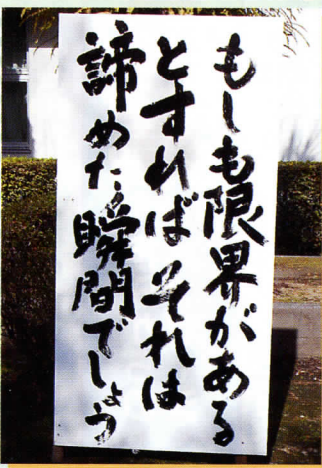 もしも限界がある
とすれば それは
諦めた瞬間でしょう